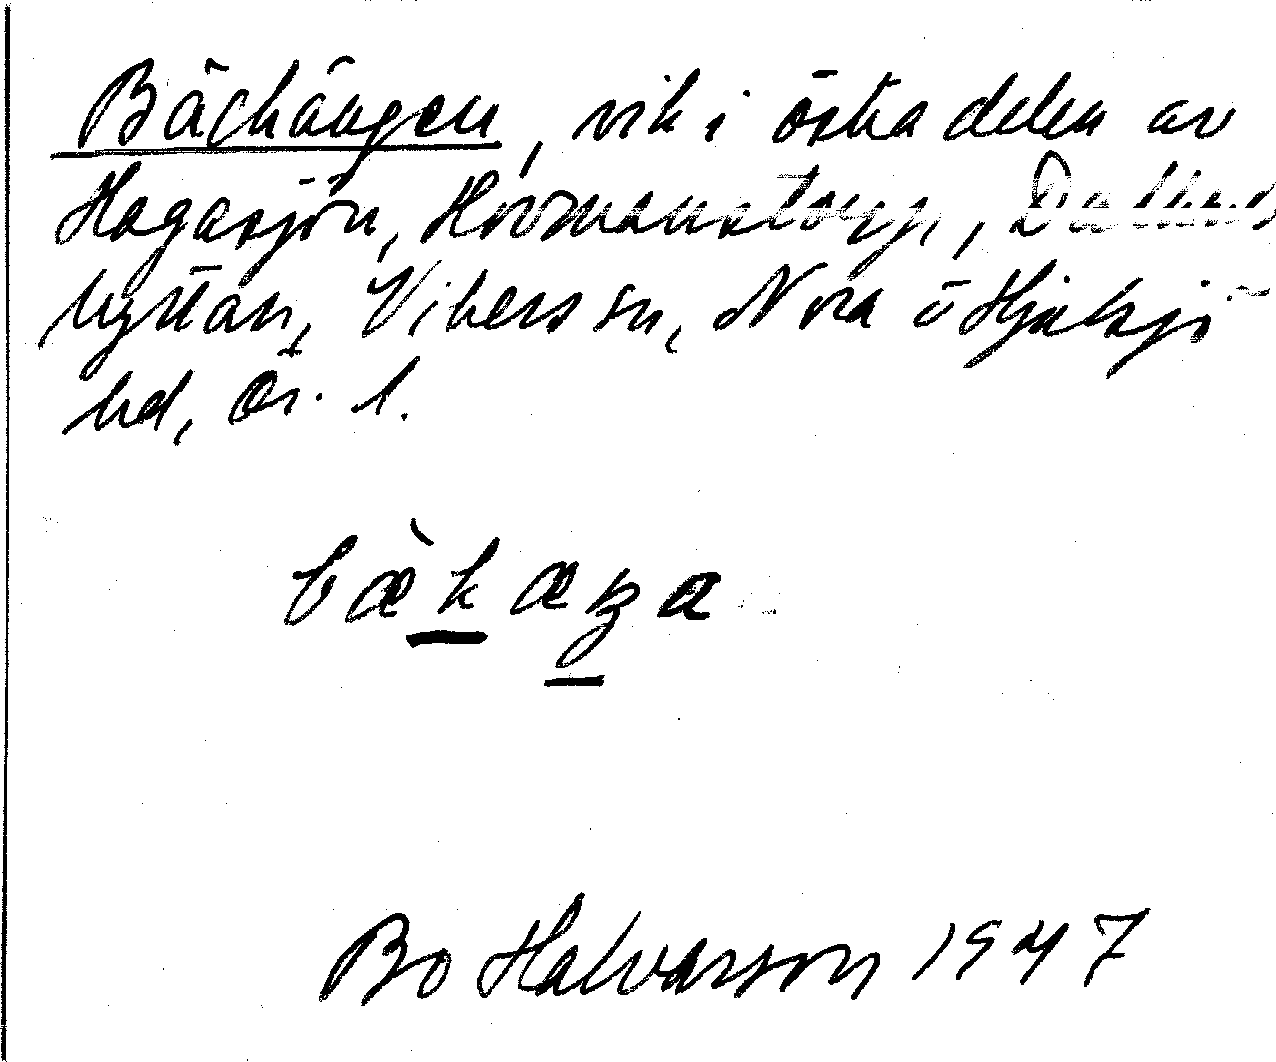 Bäckängen, vik i östra delen av
Hagasjön, Hovmanstorp, Dalkarls
hyttan, Vibers sn, Nora o Hjulsjö
hd, Ör. l.
bæ̀kæŋa
Bo Halvarson 1947